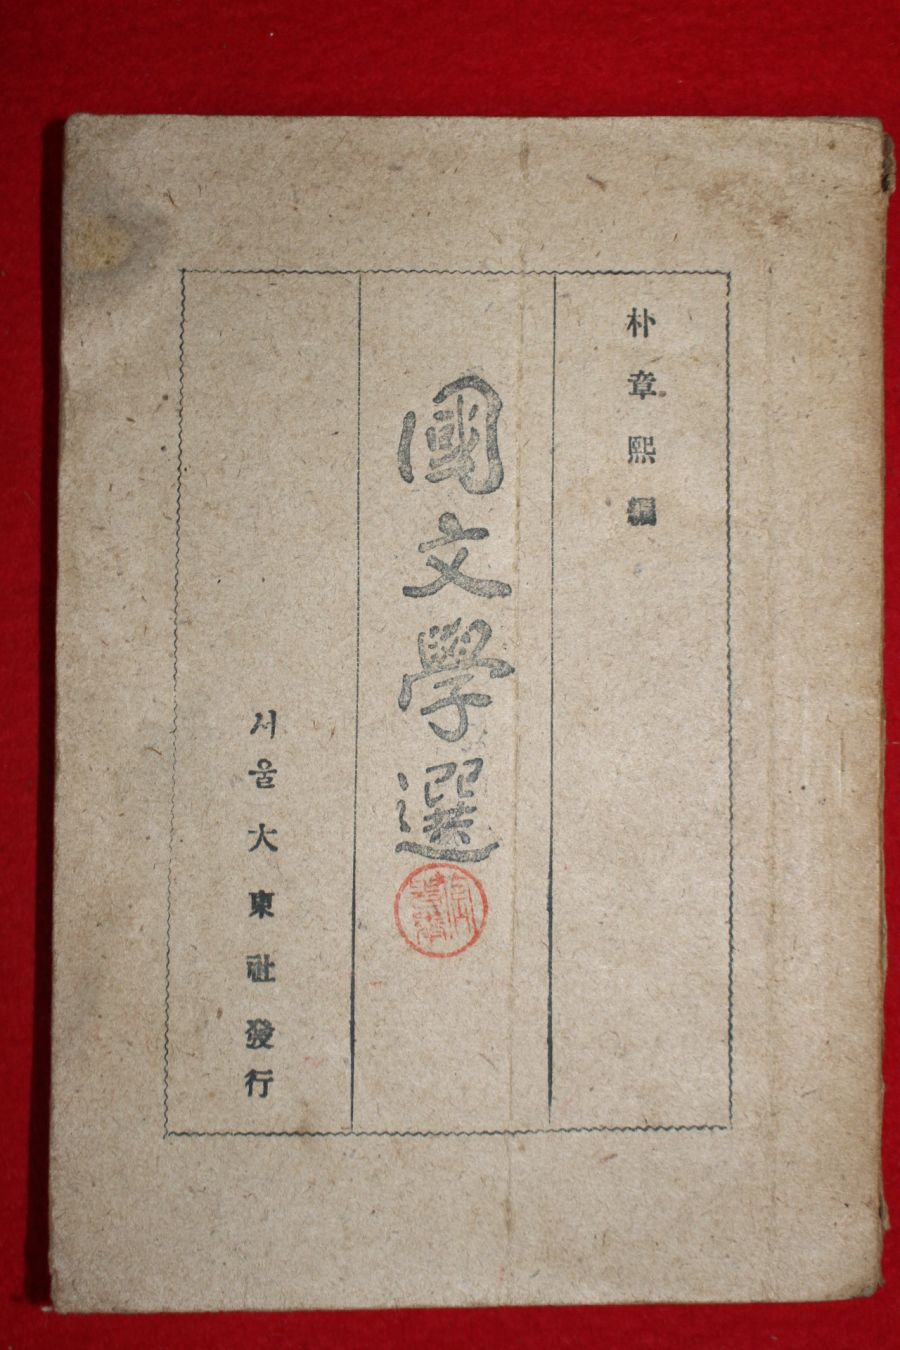 朴章熙編
國文學選
서울大東社發行